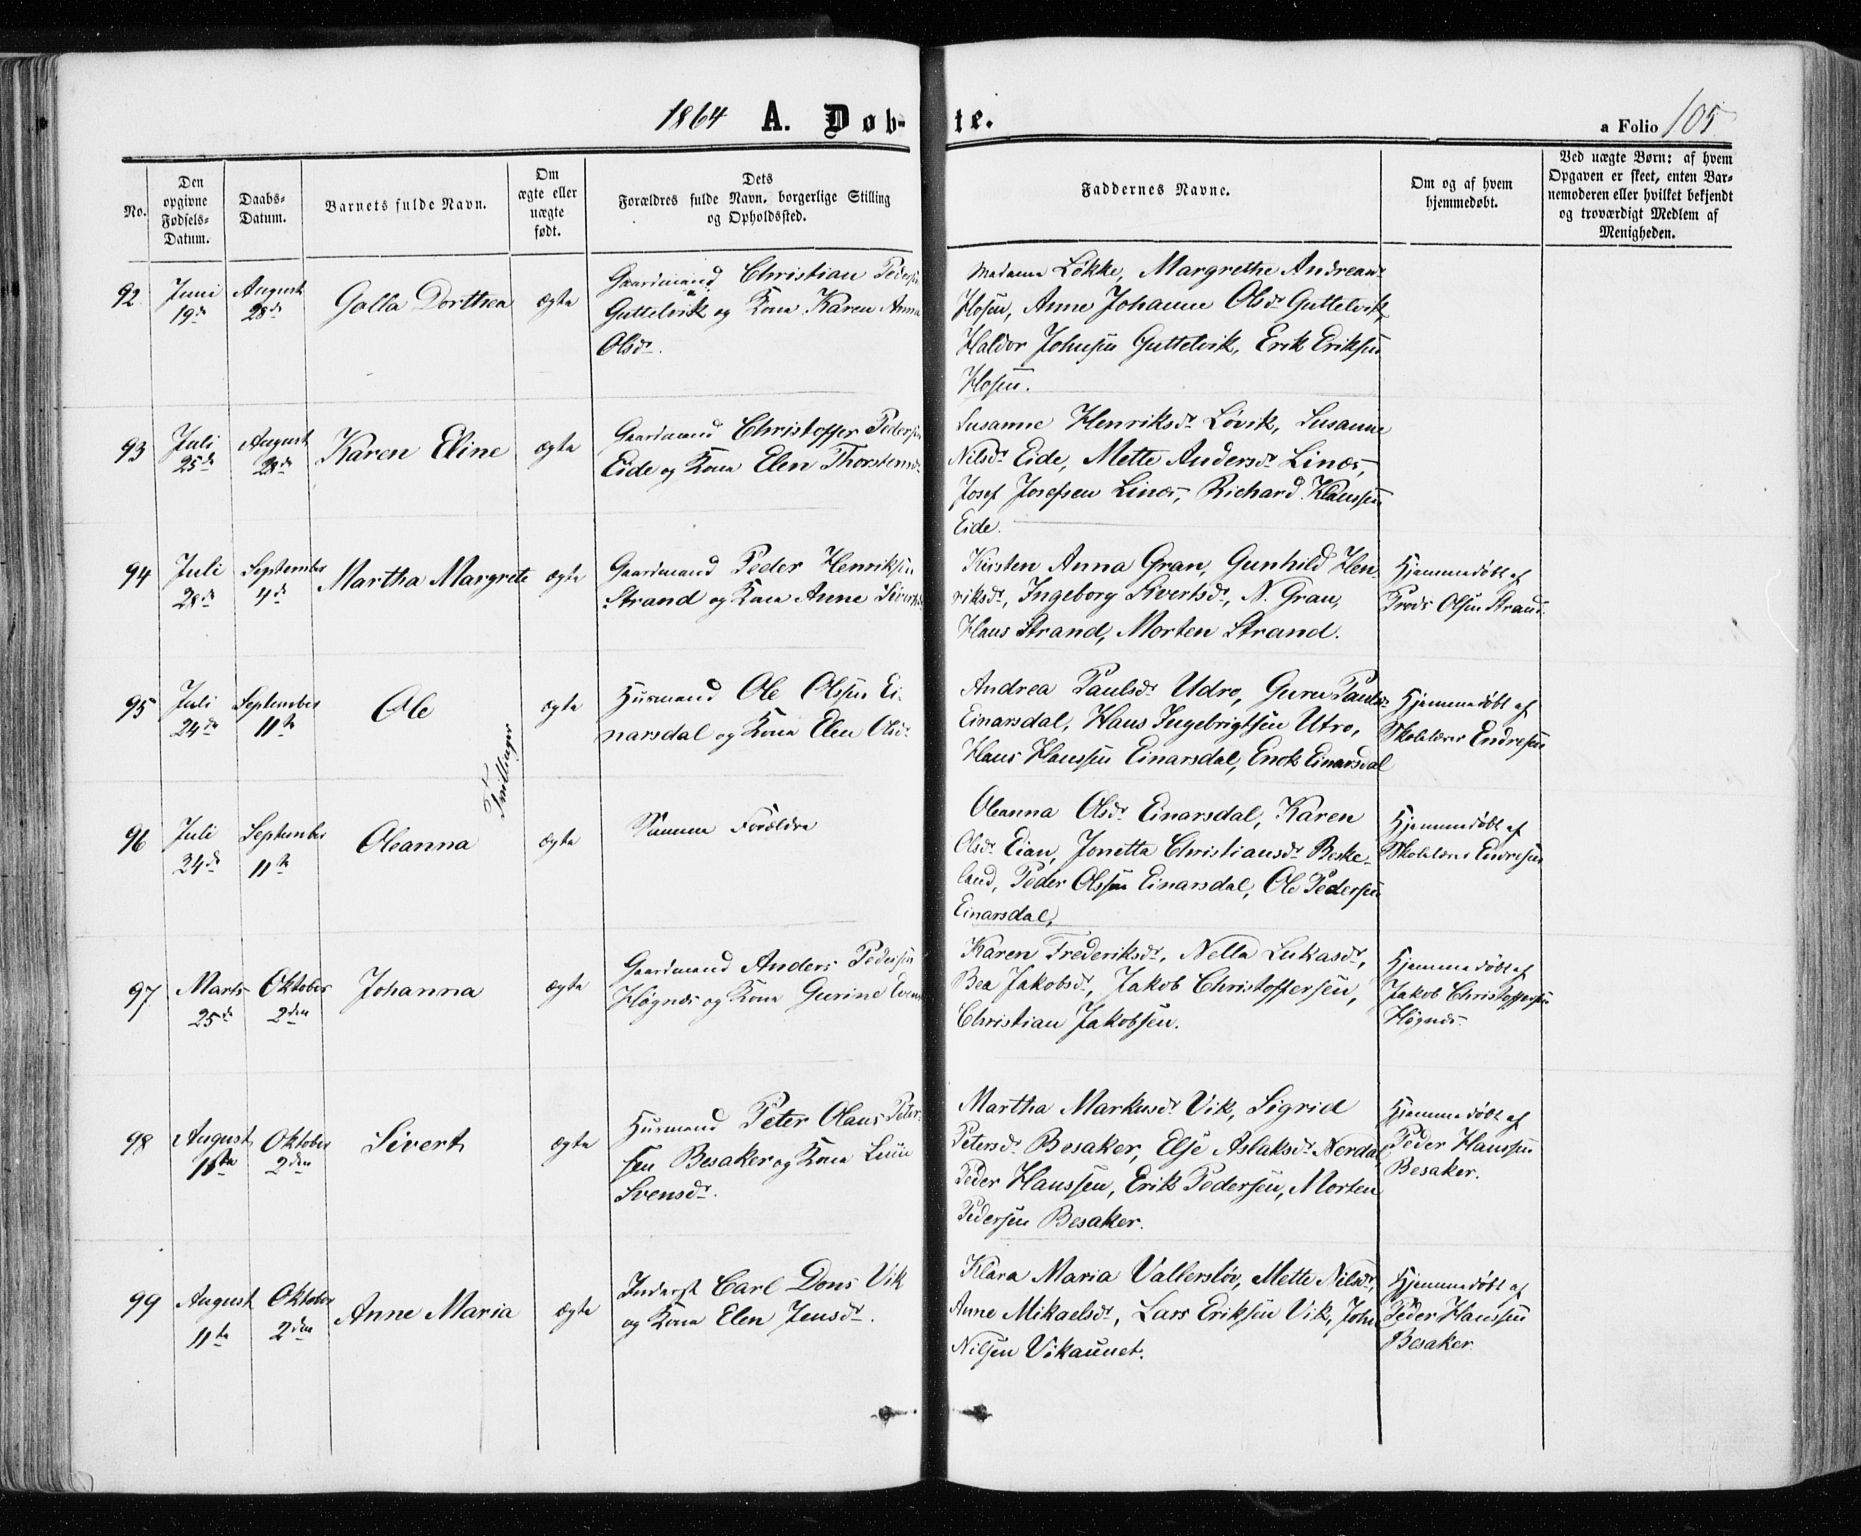 1864 A. Døb- te.
a Folio 105
No.
Den opgivne Fødsels-Datum.
Daabs-Datum.
Barnets fulde Navn.
Om ægte eller uægte født.
Dets Forældres fulde Navn, borgerlige Stilling og Opholdssted.
Faddernes Navne.
Om og af hvem hjemmedøbt.
Ved uægte Børn: af hvem Opgaven er skeet, enten Barnemoderen eller hvilket bekjendt og troværdigt Medlem af Menigheden.
92 Juni 19de August 28de Golla Dorthea ægte
Gaardmand Christian Peders
Guttelvik og Kone Karen Anna
Olsdr.
Madame Løkke, Margrethe Andreasdr
Hosen, Anne Johanne Olsdr Guttelvik,
Haldor Johnsen Guttelvik, Erik Eriksen
Hosen.
93 Juli 25de August 28de Karen Eline ægte
Gaardmand Christoffer Pedersen
Eide og Kone Elen Thorstensdr
Susanne Henriksdr Løvik, Susanne
Nilsdr Eide, Mette Andersdr Linæs,
Josef Josefsen Linæs, Richard Klaussen
Eide.
94 Juli 28de September 4de Martha Margrete ægte
Gaardmand Peder Henriksen
Strand og Kone Anne Sivertsdr
Kirsten Anna Gran, Gunhild Hen-
riksdr, Ingeborg Sivertsdr, N. Gran,
Hans Strand, Morten Strand.
Hjemmedøbt af
Olsen Strand.
95 Juli 24de September 11te Ole ægte
Tvillinger
Husmand Ole Olssen Ei-
narsdal og Kone Elen Olsdr
Andrea Paulsdr Udro, Guru Paulsdr
Einarsdal, Hans Ingebrigtsen Utro,
Hans Hanssen Einarsdal, Enok Einarsdal
Hjemmedøbt af
Skolelærer Endresen
96 Juli 24de September 11te Oleanna ægte
Samme Forældre
Oleanna Olsdr Einarsdal, Karen
Olsdr Eian, Jonetta Christiansdr Beske-
land, Peder Olssen Einarsdal, Ole Pedersen
Einarsdal,
Hjemmedøbt af
Skolelærer Endresen
97 Marts 25de Oktober 2den Johanna ægte
Gaardmand Anders Pedersen
Høgnæs og Kone Gurine
Karen Frederiksdr, Nella Lukasdr,
Bea Jakobsdr, Jakob Christoffersen,
Christian Jakobsen.
Hjemmedøbt af
Jakob Christoffersen
Høgnæs.
98 August 11te Oktober 2den Sivert ægte
Husmand Peter Olaus Peter-
sen Besaker og Kone
Svensdr.
Martha Markusdr Vik, Sigrid
Petersdr Besaker, Elje Aslaksdr Nerdal,
Peder Hanssen, Erik Pedersen, Morten
Pedersen Besaker.
Hjemmedøbt af
Peder Hanssen
Besaker.
99 August 11te Oktober 2den Anne Maria ægte
Inderst Carl Dons Vik
og Kone Elen Jensdr.
Klara Maria Vallersløv, Mette Nilsdr,
Anne Mikaelsdr, Lars Eriksen Vik, John
Nilsen Vikaunet.
Hjemmedøbt af
Peder Hanssen
Besaker.